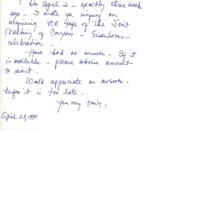 On April 2 - exactly three weeks
ago - I wrote you inquiry on
acquiring VCR tape of the Joint
Meeting of Congress - Eisenhower
celebration.
Have had no answer. If it
is available - please advise amount
to remit.
Would appreciate an answer
before it is too late.
Yours truly,
April 23, 1990